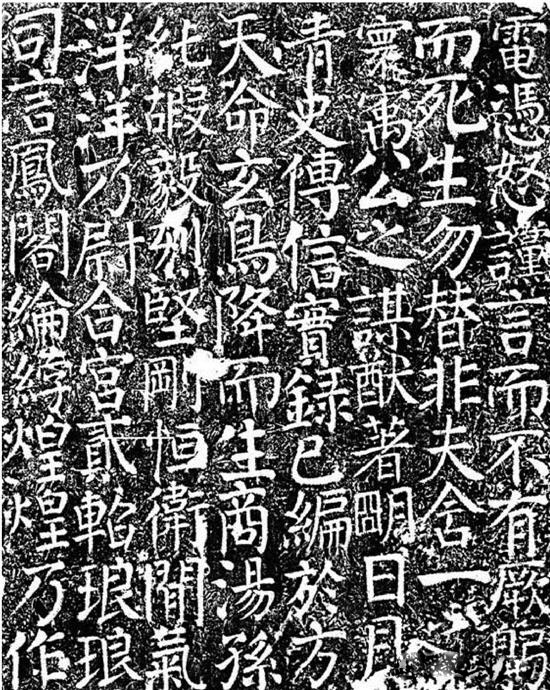 電憑怒謹言而不有厥躬
而死生勿替非夫含一
寰寓公之謀猷著明日月
青史傳信實錄已編於方
天命玄鳥降而生商湯孫
純嘏毅烈堅剛恒衛間氣
洋洋乃尉合宮貳軺琅琅
司言鳳閣綸綍煌煌乃作